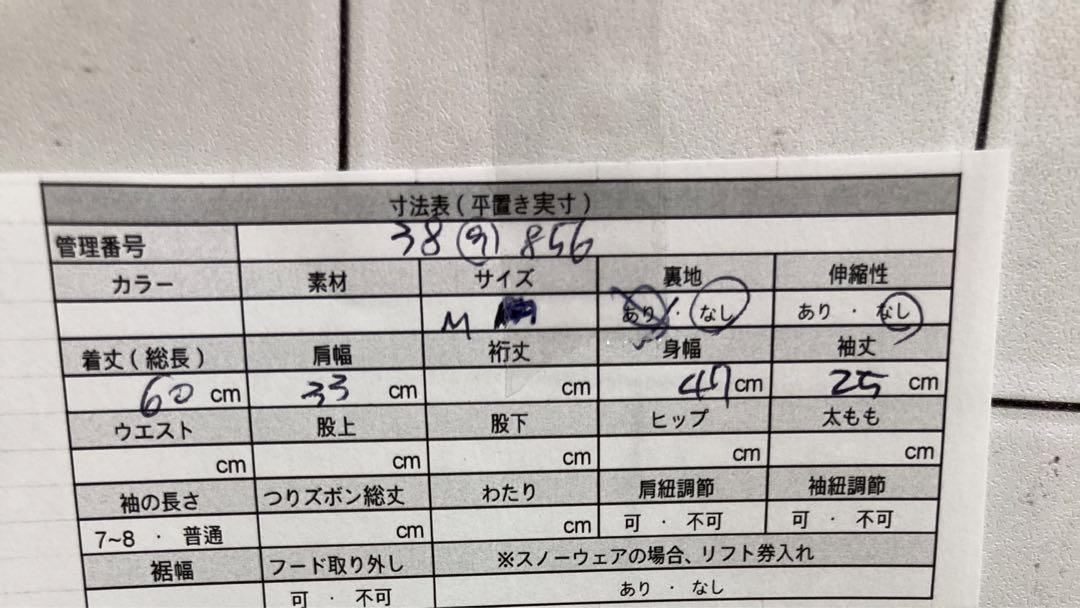 寸法表(平置き実寸)
管理番号 38 856
カラー 素材 サイズ 裏地 伸縮性
M あり・なし あり・なし
着丈(総長) 肩幅 裄丈 身幅 袖丈
60 cm 33 cm cm 47 cm 25 cm
ウエスト 股上 股下 ヒップ 太もも
cm cm cm cm cm
袖の長さ つりズボン総丈 わたり 肩紐調節 袖紐調節
7~8・普通 cm cm 可・不可 可・不可
裾幅 フード取り外し ※スノーウェアの場合、リフト券入れ
可・不可 あり・なし